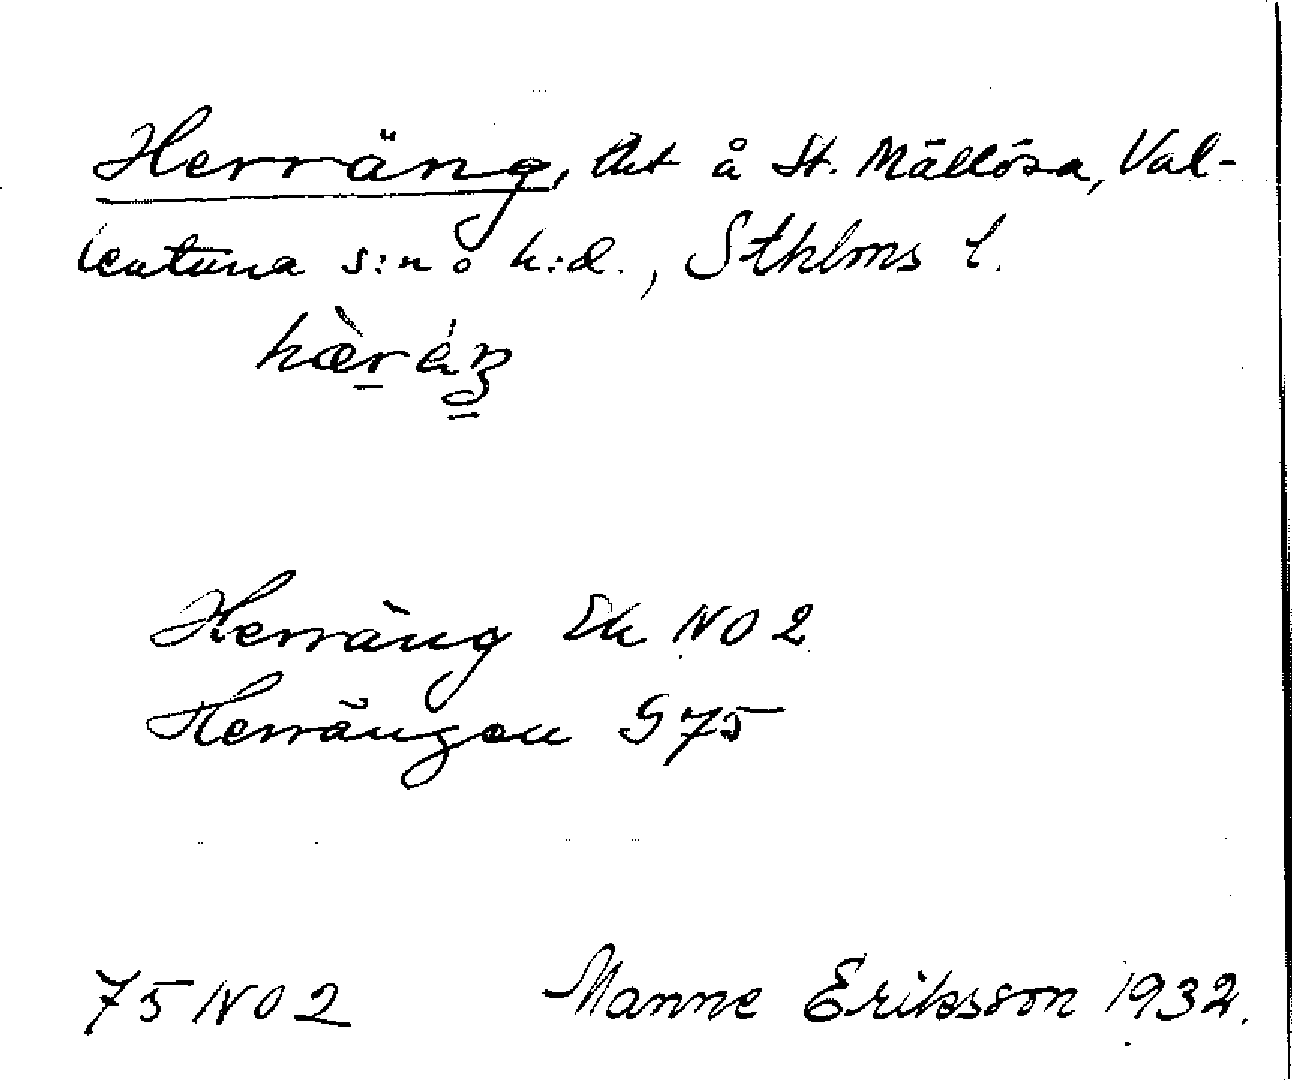 Herräng, tht å St. Mällösa, Val-
lentuna s:n o h:d., Sthlms l.
hæ̀ráŋ
Herräng Ek NO 2
Herrängen G 75
75 NO 2 Manne Eriksson 1932.